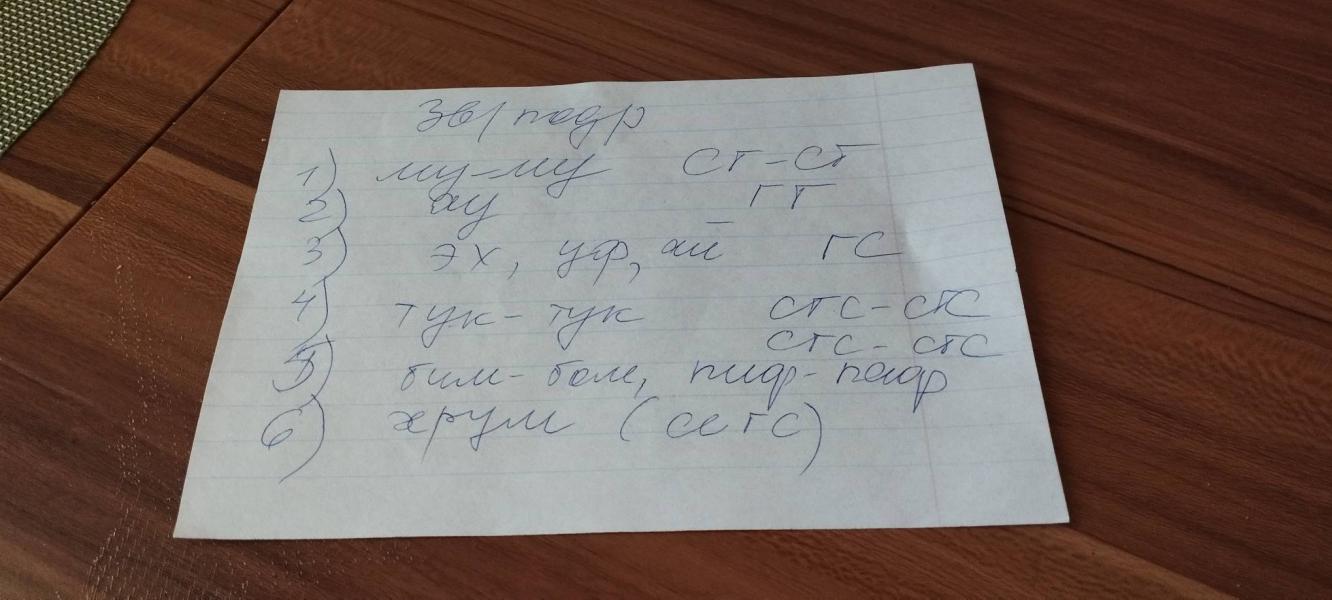 Зв/подр
1) му-му СГ-СГ
2) ау ГГ
3) эх, уф, ай ГС
4) тук-тук СГС-СГС
СГС-СГС
5) бим-бом, пиф-паф
6) хрум (ССГС)